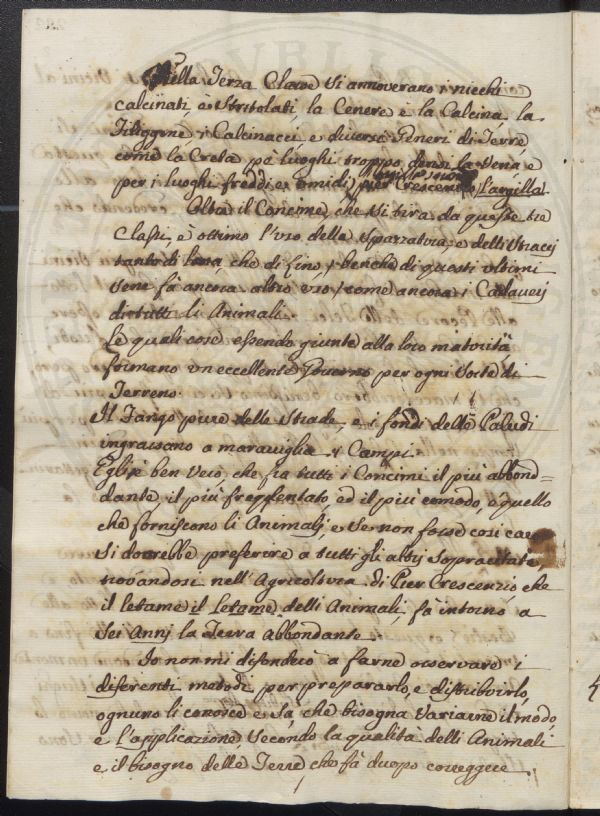 Nella Terza Classe si annoverano i nicchi
calcinati, e stritolati, la Cenere e la Calcina la
Filiggine, i Calcinacci, e diversi Generi di Terre,
come la Creta pè luoghi troppo la Vena e
per i luoghi freddi, e umidi, per Crescenzio l'argilla.
Oltre il Concime, che si tira da queste tre
Classi, è ottimo l'uso della spazzatura e delli stracij
tanto di lana che di Lino, / benche di questi ultimi
sene fà ancora altro uso / come ancora i Cadaverj
di tutti li Animali.
Le quali cose essendo giunte alla loro maturità
formano un eccellente Governo per ogni Sorte di
Terreno.
Il Fango pure delle strade, e i fondi delle Paludi
ingrassano a maraviglia i Campi.
Egli è ben vero, che fra tutti i Concimi il più abbon=
dante, il più freqfentato, ed il più comodo, e quello
che forniscono li Animalj, e se non fosse così caro
si dovrebbe preferire a tutti gli altrj sopracitati,
trovandosi nell'Agricoltura di Pier Crescenzio che
il letame il Letame delli Animali, fà intorno a
sei Annj la Terra abbondante.
Io non mi difonderò a farne osservare i
diferenti metodi per prepararlo, e distribuirlo,
ognuno li conosce e sà, che bisogna variarne il modo,
e l'applicazione, secondo la qualita delli Animali
e il bisogno delle Terre che fà duopo coreggere.